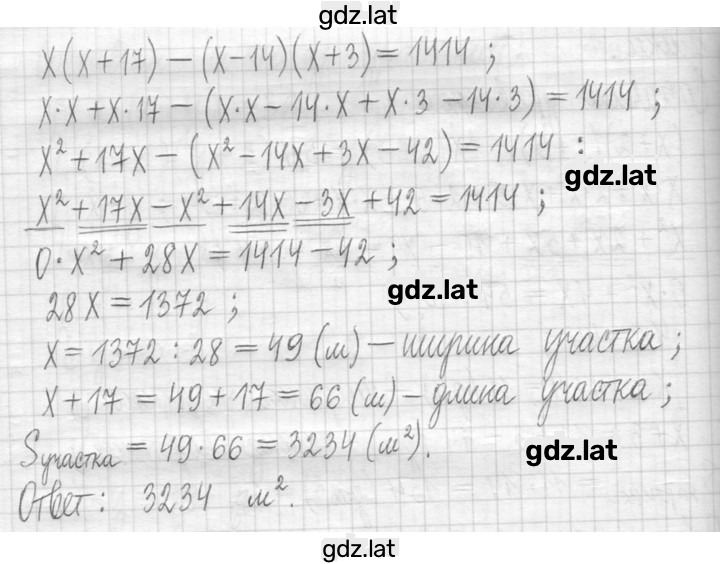 gdz.lat
x(x+17) – (x–14)(x+3) = 1414 ;
x·x + x·17 – (x·x – 14·x + x·3 – 14·3) = 1414 ;
x² + 17x – (x² – 14x + 3x – 42) = 1414 :
gdz.lat
x² + 17x – x² + 14x – 3x + 42 = 1414 ;
0·x² + 28x = 1414 – 42 ;
gdz.lat
28x = 1372 ;
x = 1372 : 28 = 49 (м) – ширина участка ;
x + 17 = 49 + 17 = 66 (м) – длина участка ;
Sучастка = 49·66 = 3234 (м²).
gdz.lat
Ответ: 3234 м².
gdz.lat